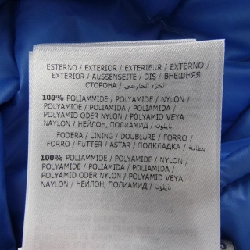 ESTERNO / EXTERIOR / EXTERIEUR / EXTERNO /
EXTERIOR / AUSSENSEITE / DIS / ВНЕШНЯЯ
СТОРОНА / الجزء الخارجي
100% POLIAMMIDE / POLYAMIDE / NYLON /
POLYAMIDE / POLIAMIDA / POLIAMIDA /
POLYAMID ODER NYLON / POLYAMID VEYA
NAYLON / НЕЙЛОН, ПОЛИАМИД / نايلون
FODERA / LINING / DOUBLURE / FORRO /
FORRO / FUTTER / ASTAR / ПОДКЛАДКА / بطانة
100% POLIAMMIDE / POLYAMIDE / NYLON /
POLYAMIDE / POLIAMIDA / POLIAMIDA /
POLYAMID ODER NYLON / POLYAMID VEYA
NAYLON / НЕЙЛОН, ПОЛИАМИД / نايلون